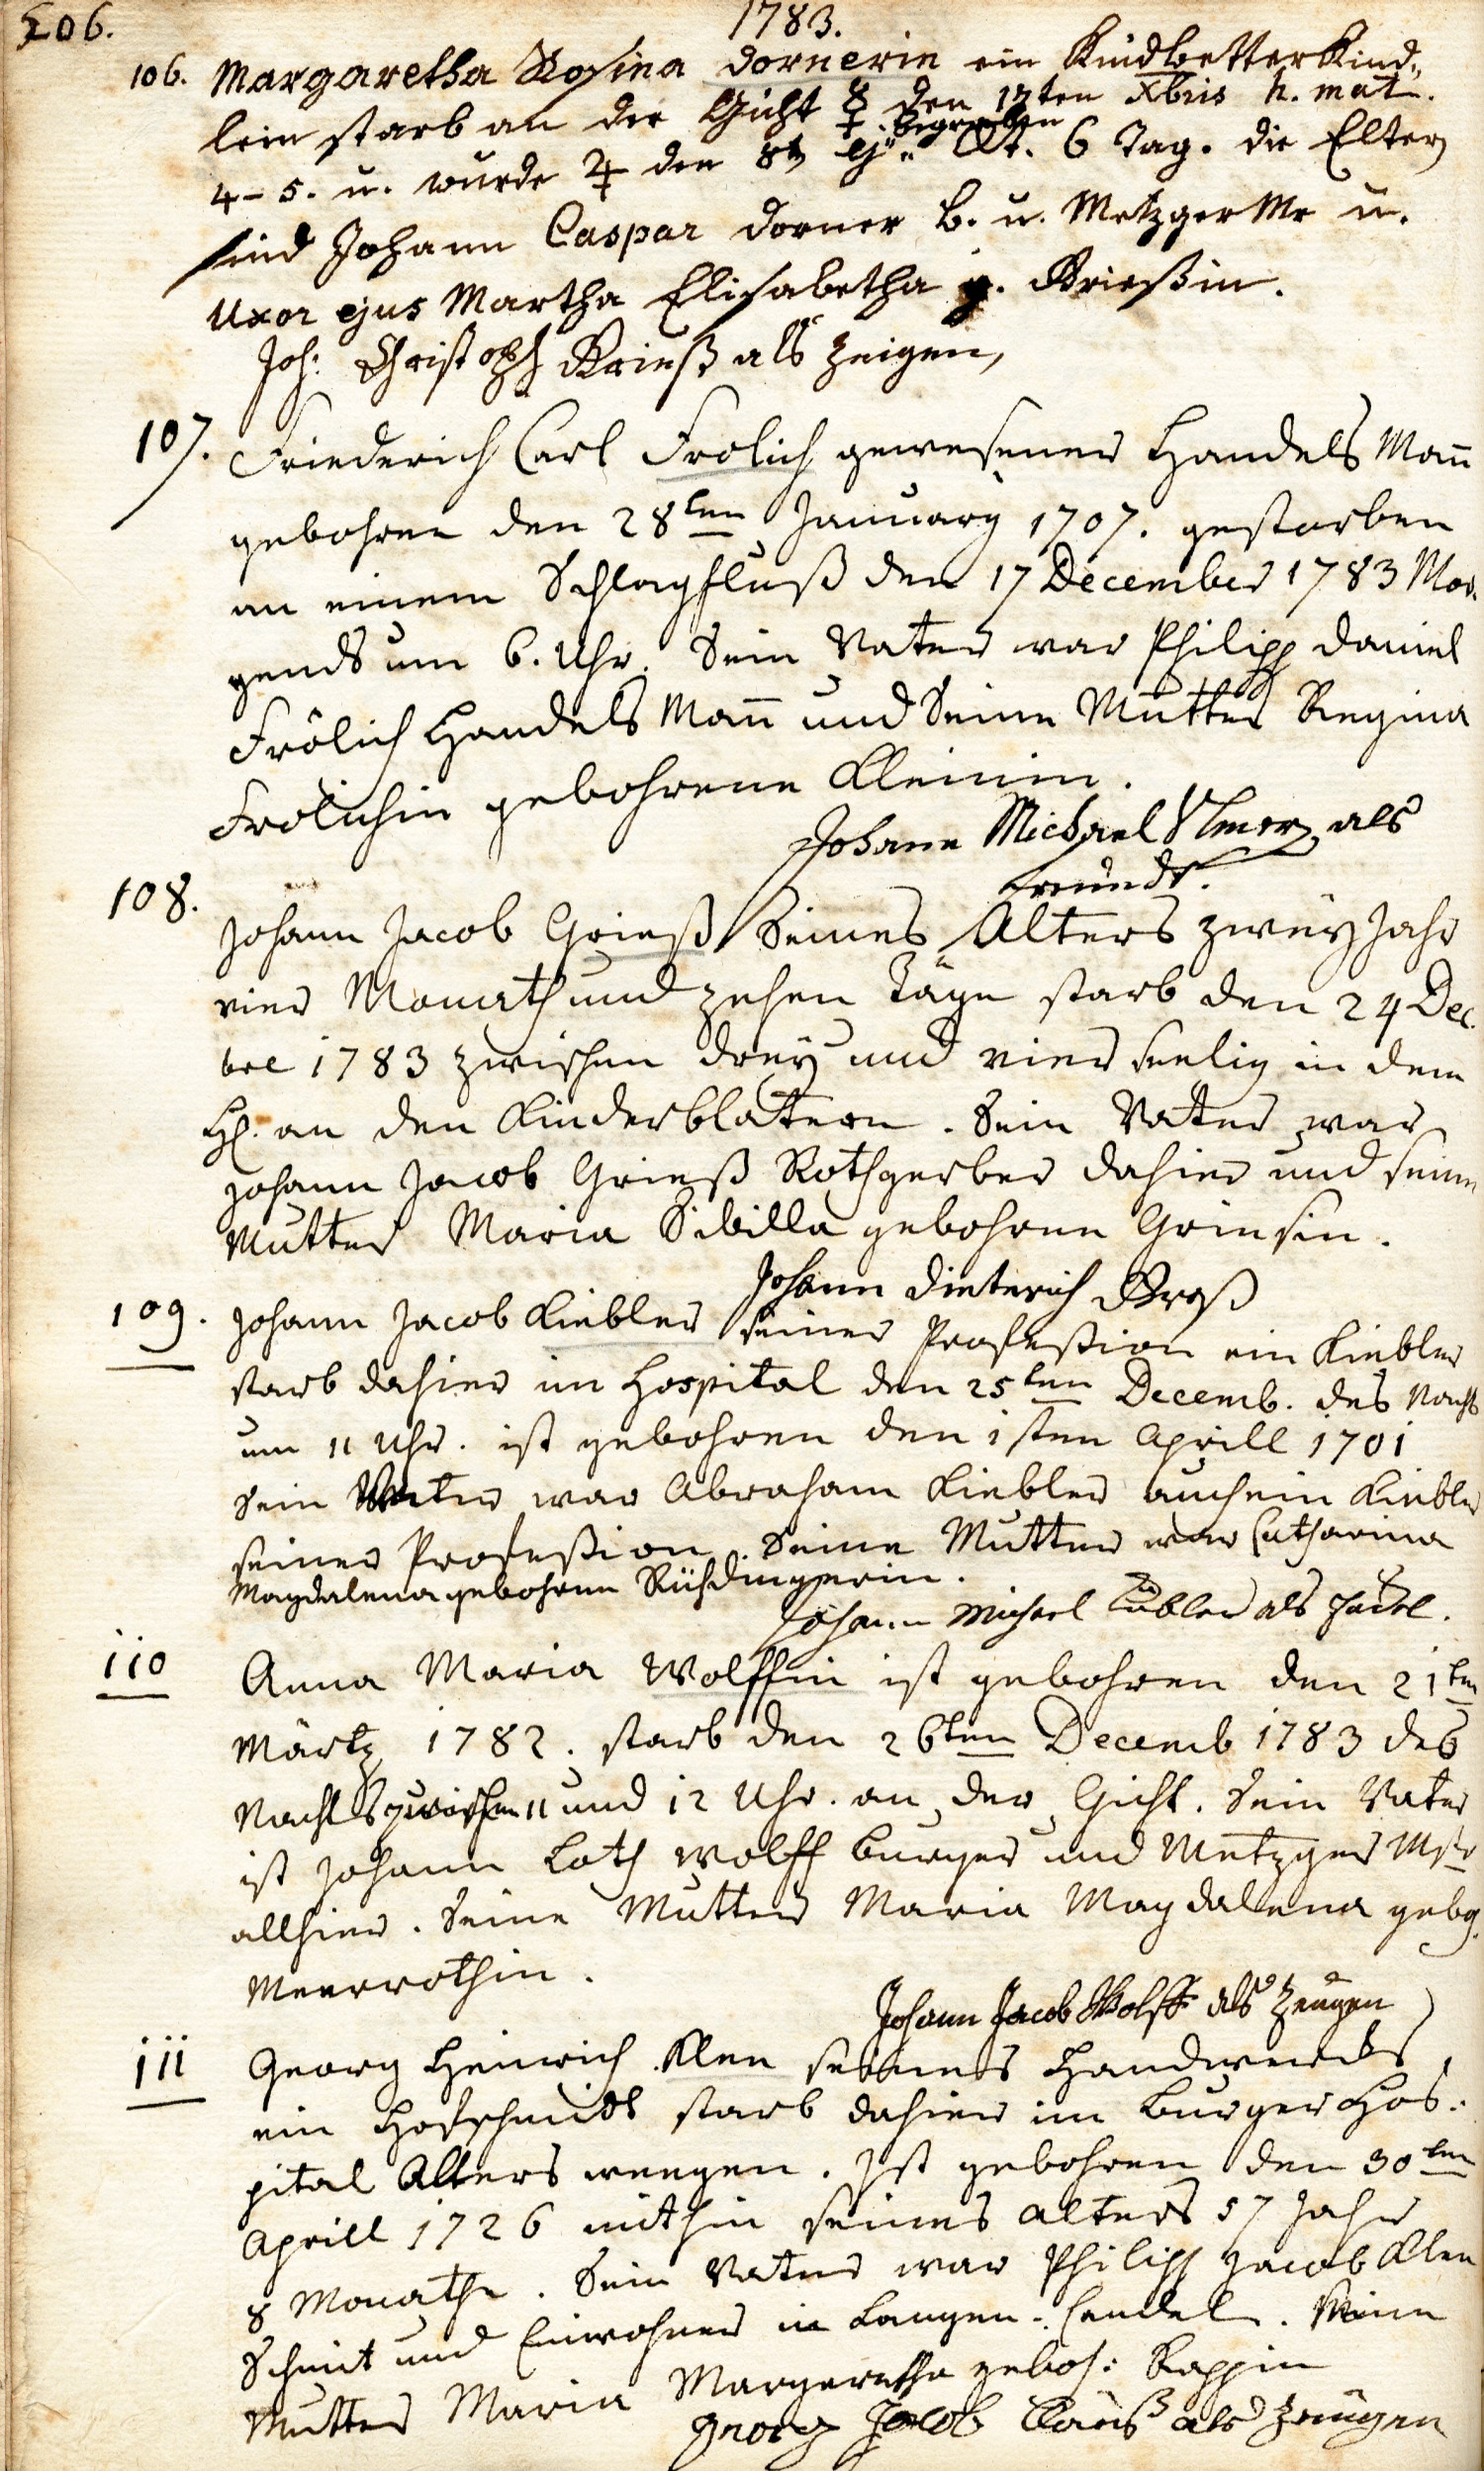 206.
1783.
106. Margaretha Rosina Dornerin ein Kindbetterkind-
lein starb an der Gicht ☿ den 17ten Xbris h. mat.
4-5. u. wurde ♃ den 18t ej. begraben Alt. 6 Tag. die Eltern
sind Johann Caspar Dorner B. u. Metzger Mr u.
Uxor ejus Martha Elisabetha g. Krießin.
Joh: Christoph Krieß als Zeigen,
107. Friederich Carl Frölich gewesener Handels Mañ
gebohren den 28ten January 1707. gestorben
an einem Schlagfluß den 17 December 1783 Mor-
gends um 6. Uhr. Sein Vater war Philipp Daniel
Frölich Handels Mañ und Seine Mutter Regina
Frölichin gebohrene Kleinin.
Johann Michael Ulmer, als
Freundt.
108. Johann Jacob Grieß Seines Alters zweÿ Jahr
vier Monath und zehen Täge starb den 24 Dec.
bre 1783 zwischen dreÿ und vier seelig in dem
H. an den Kinderblatern. Sein Vater war
Johann Jacob Grieß Rothgerber dahier und seine
Mutter Maria Sibilla gebohrne Griesin.
Johann Dieterich Groß
109. Johann Jacob Kiebler seiner Profeßion ein Kiebler
starb dahier im Hospital den 25ten Decemb. des Nachts
um 11 Uhr. ist gebohren den 1sten Aprill 1701
Sein Vater war Abraham Kiebler auch ein Kiebler
seiner Profeßion. Seine Mutter war Catharina
Magdalena gebohrne Rühdingerin.
Johann Michael Kübler als
110 Anna Maria Wolffin ist gebohren den 21ten
Märtz 1782. starb den 26ten Decemb 1783 des
Nachts zwischen 11 und 12 Uhr. an der Gicht. Sein Vater
ist Johann Loth Wolff Burger und Metzger Mstr
allhier. Seine Mutter Maria Magdalena gebo.
Meerrothin.
Johann Jacob Wolff als Zeugen
111 Georg Heinrich Klee seines Handwercks
ein Hofschmidt starb dahier im Burger Hos-
pital Alters weegen. Ist gebohren den 30ten
Aprill 1726 mithin seines Alters 57 Jahr
8 Monathe. Sein Vater war Philipp Jacob Klee
Schmit und Einwohner in Langen-Candel. Seine
Mutter Maria Margaretha geboh: Rappin
Georg Jacob Clauß als Zeugen